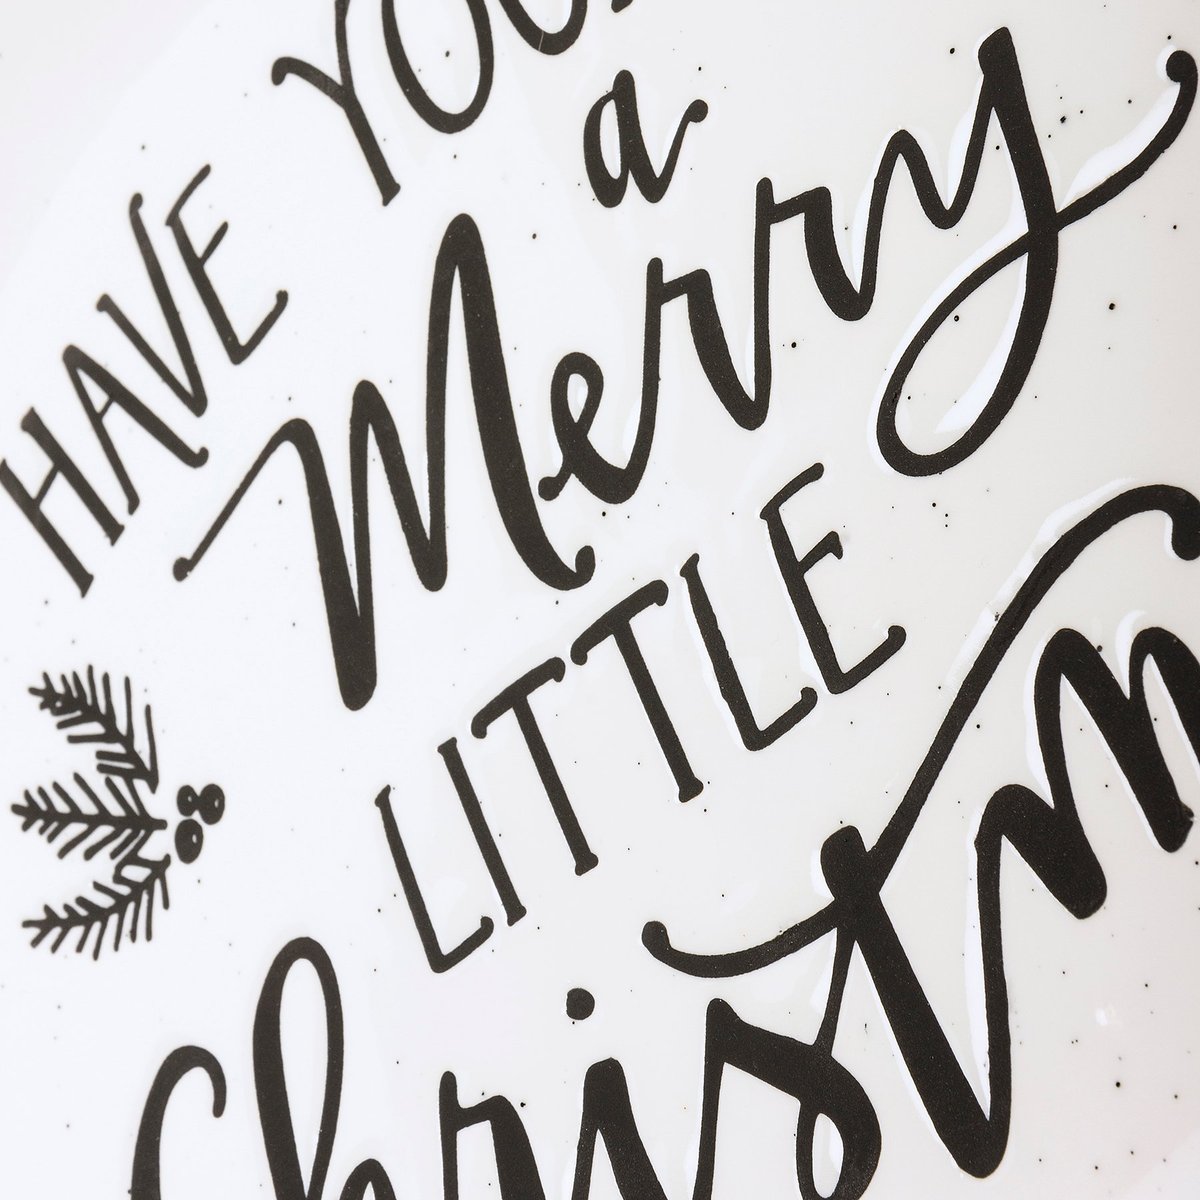 HAVE YOU
a
Merry
LITTLE
Christm